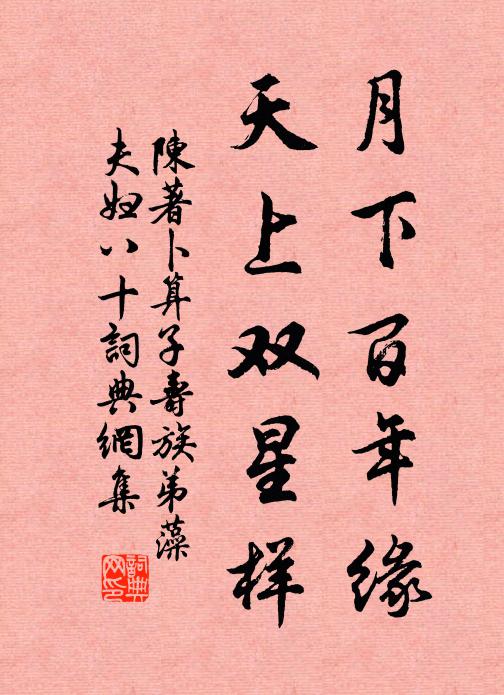 月下百年缘
天上双星样
陳著卜算子壽族弟藻
夫妇八十詞典網集
詞典网印